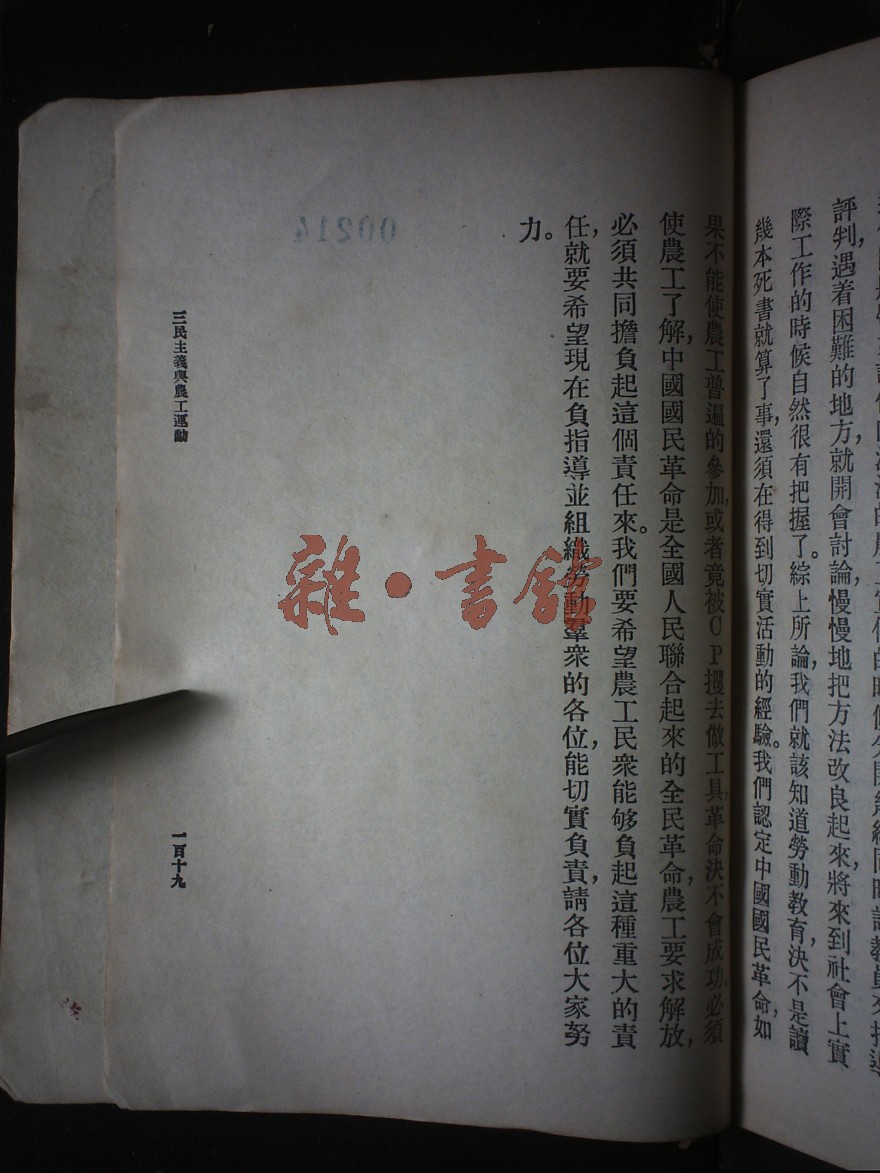 評判,遇着困難的地方,就開會討論,慢慢地把方法改良起來,將來到社會上實
際工作的時候自然很有把握了。綜上所論,我們就該知道勞動教育決不是讀
幾本死書就算了事,還須在得到切實活動的經驗。我們認定中國國民革命,如
果不能使農工普遍的參加,或者竟被CP攫去做工具,革命決不會成功,必須
使農工了解,中國國民革命是全國人民聯合起來的全民革命,農工要求解放,
必須共同擔負起這個責任來。我們要希望農工民衆能够負起這種重大的責
任,就要希望現在負指導並組織勞動羣衆的各位,能切實負責,請各位大家努
力。
三民主義與農工運動
一百十九
00214
雜·書館